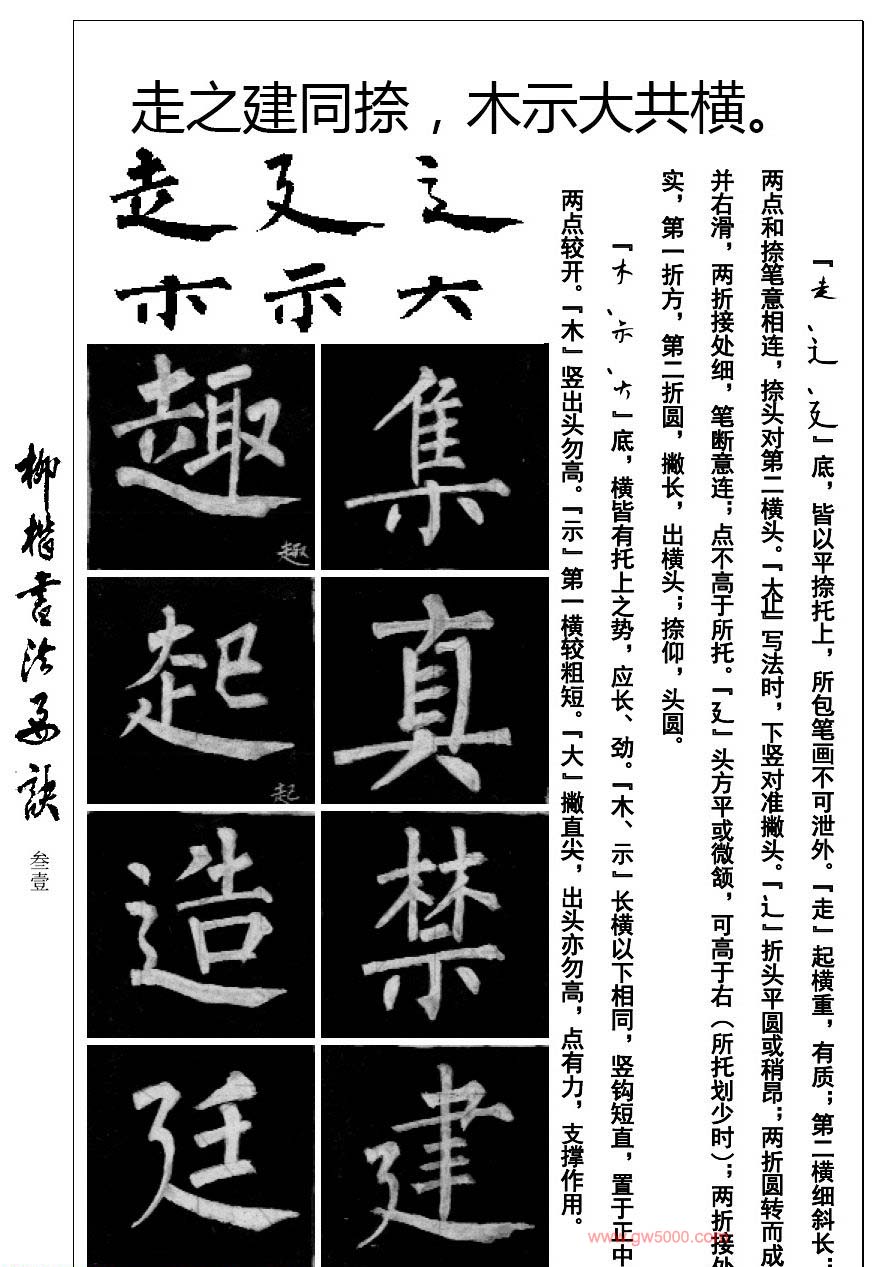 走之建同捺，木示大共横。
走 廴 辶
木 示 大
『走、辶、廴』底，皆以平捺托上，所包笔画不可泄外。『走』起横重，有质；第二横细斜长；
两点和捺笔意相连，捺头对第二横头。『大止』写法时，下竖对准撇头。『辶』折头平圆或稍昂；两折圆转而成
并右滑，两折接处细，笔断意连；点不高于所托。『廴』头方平或微颔，可高于右（所托划少时）；两折接处
实，第一折方，第二折圆，撇长，出横头；捺仰，头圆。
『木、示、大』底，横皆有托上之势，应长、劲。『木、示』长横以下相同，竖钩短直，置于正中
两点较开。『木』竖出头勿高。『示』第一横较粗短。『大』撇直尖，出头亦勿高，点有力，支撑作用。
趣 集
趣
起 真
起
造 禁
廷 建
柳楷书法要诀
叁壹
www.gw5000.com